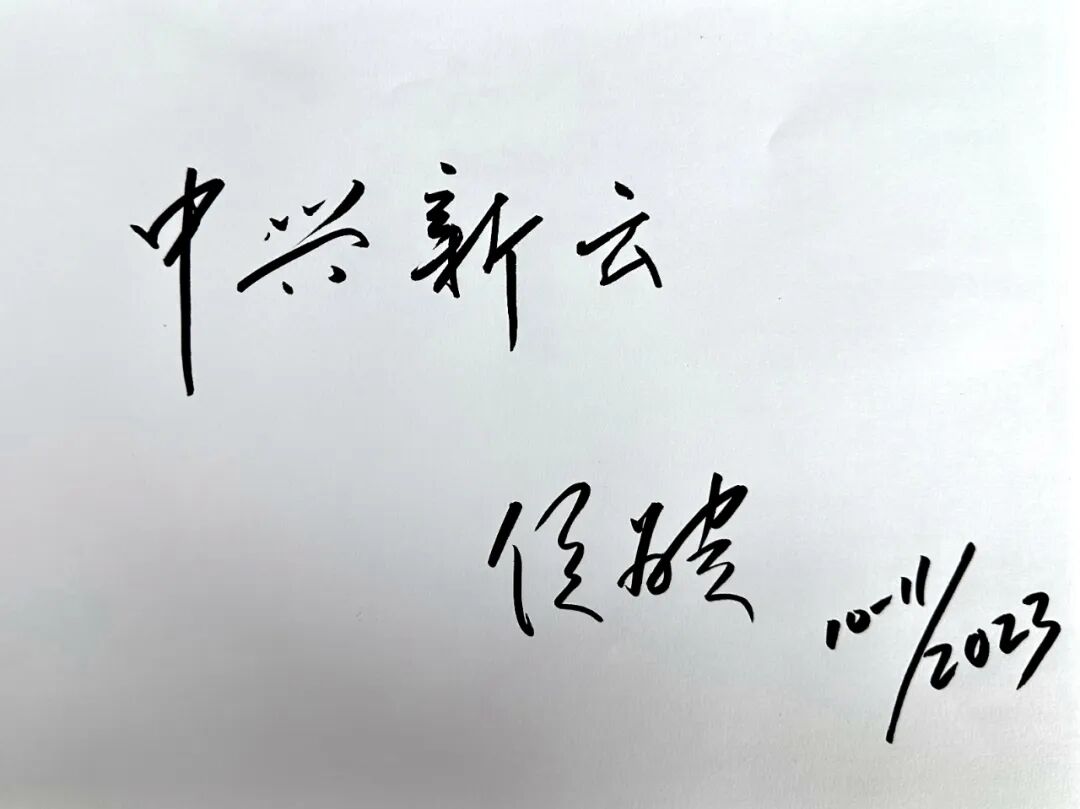 中兴新云
侯
10-11/2023